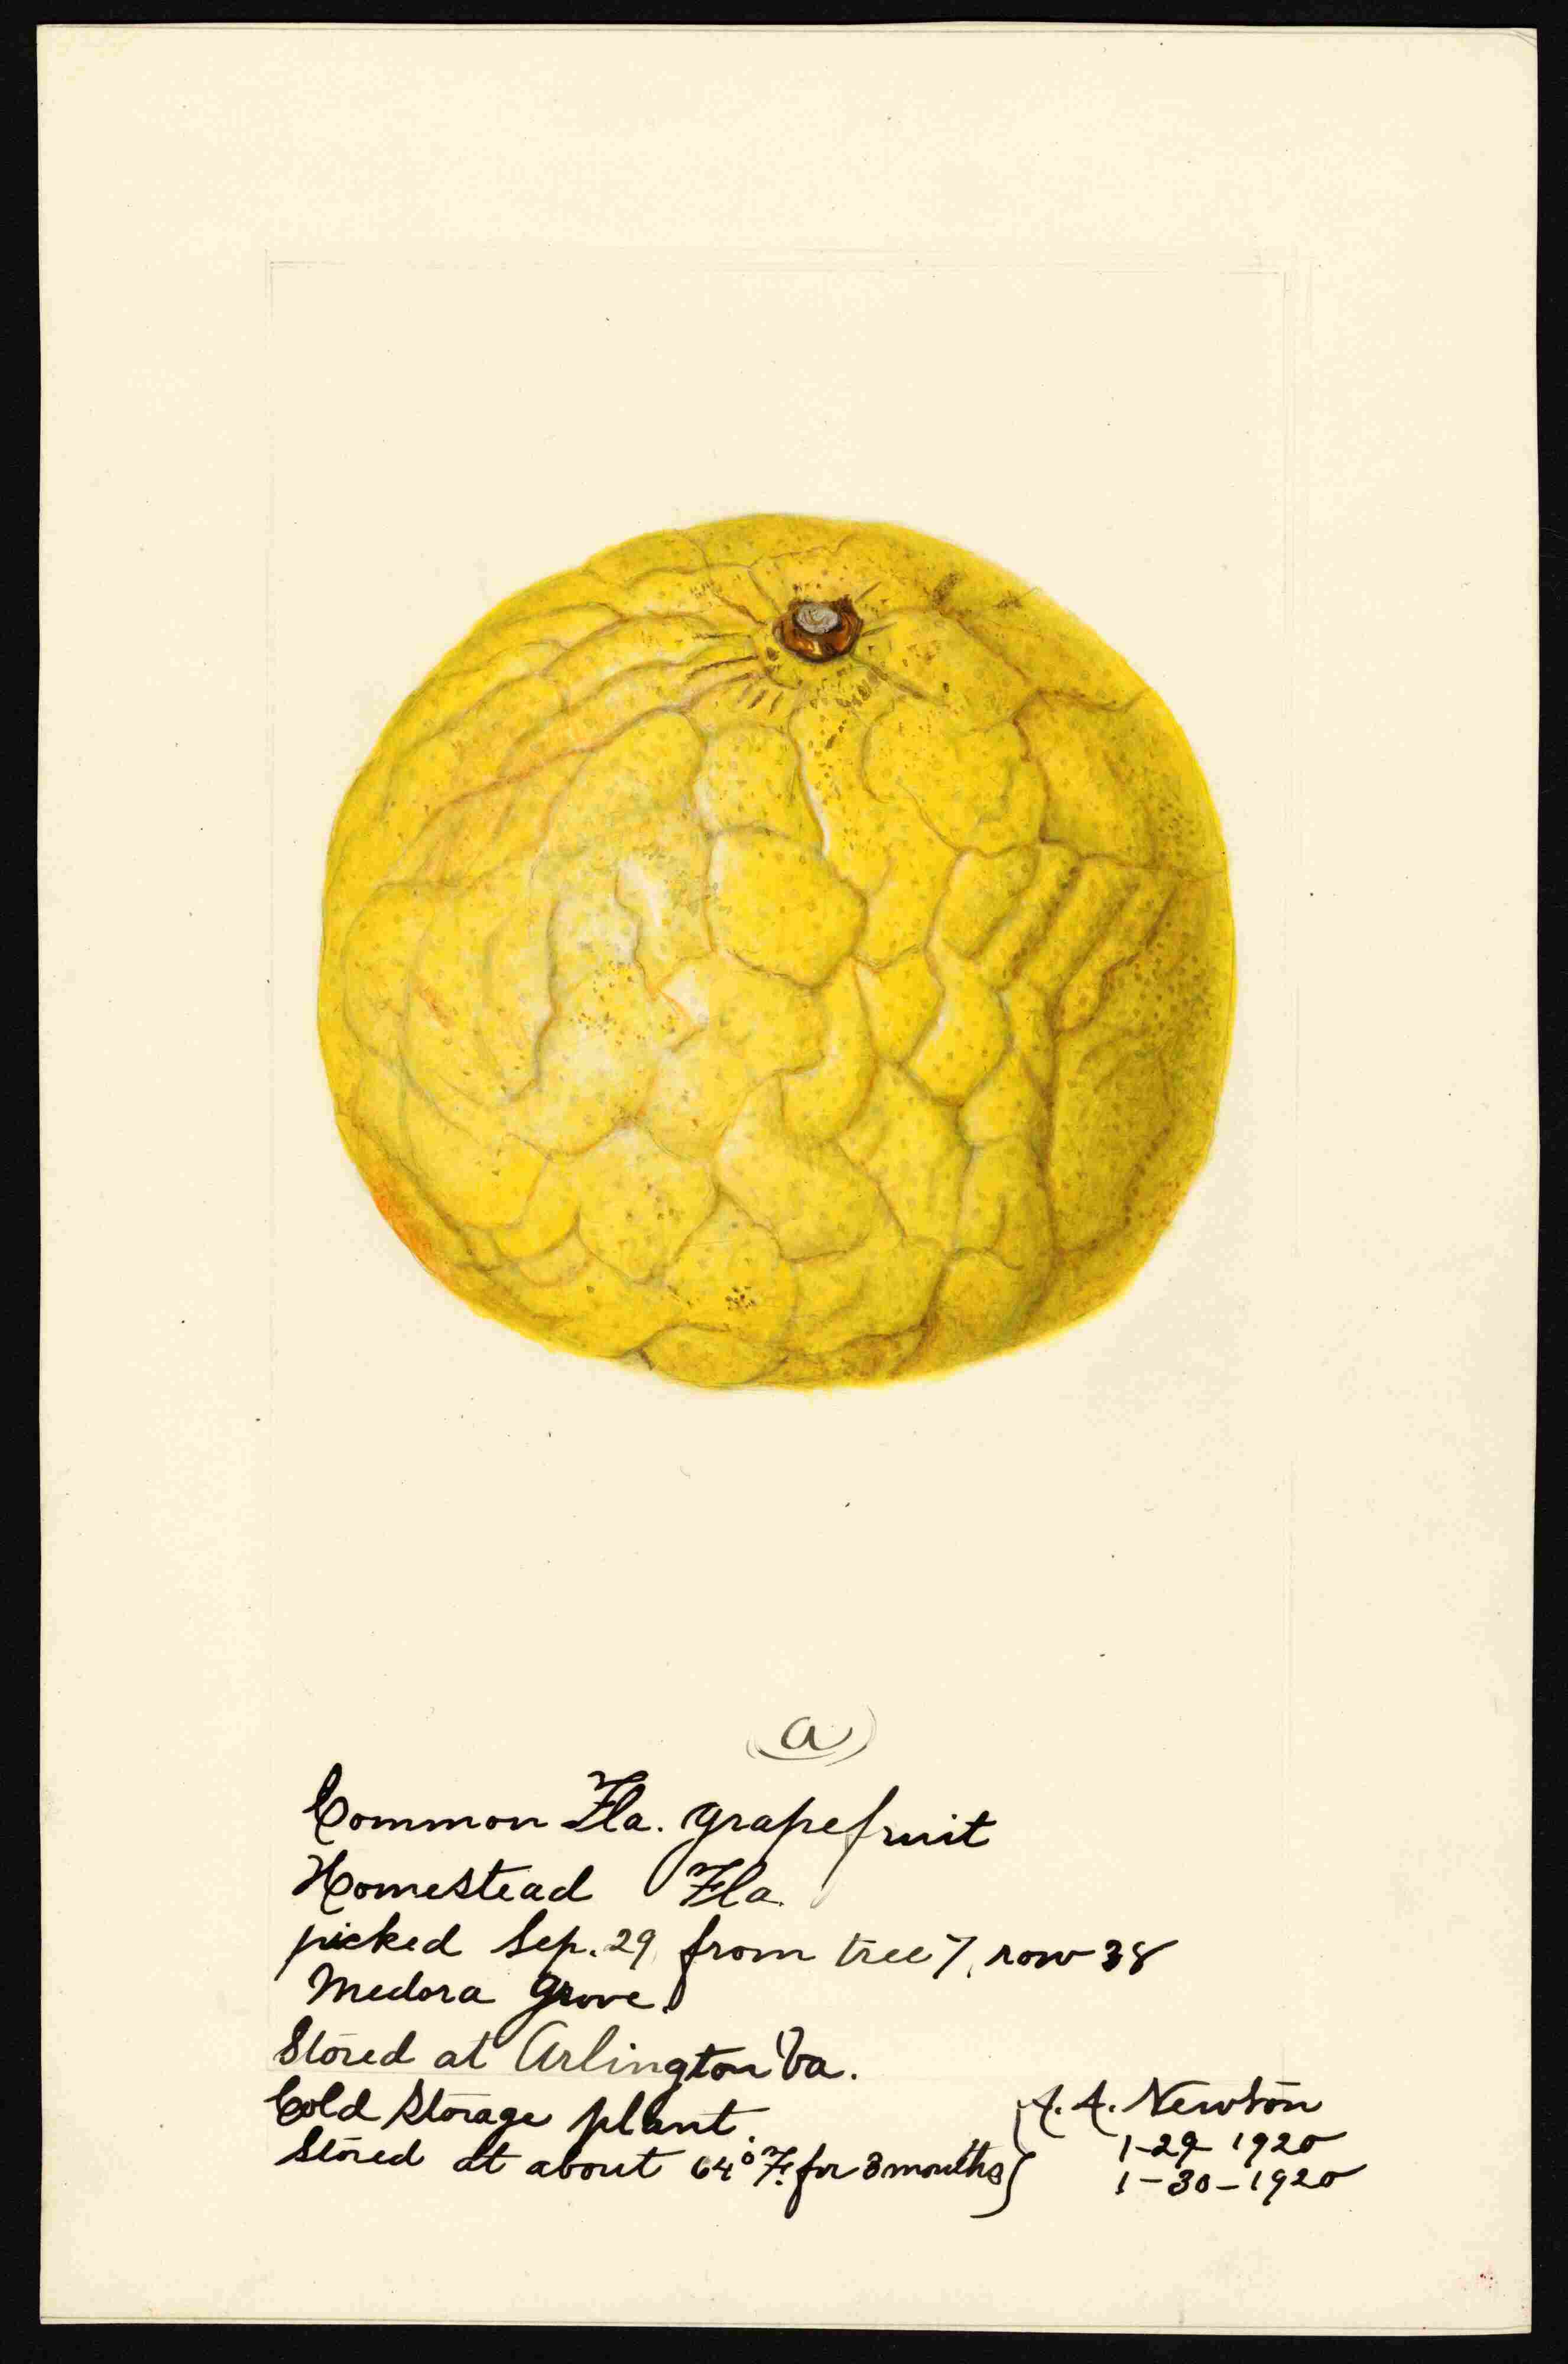 (a)
Common Fla. grapefruit
Homestead Fla.
picked Sep. 29 from tree 7, row 38
Medora grove.
Stored at Arlington Va.
Cold Storage plant.
Stored at about 64° F. for 3 months
A. A. Newton
1-29-1920
1-30-1920